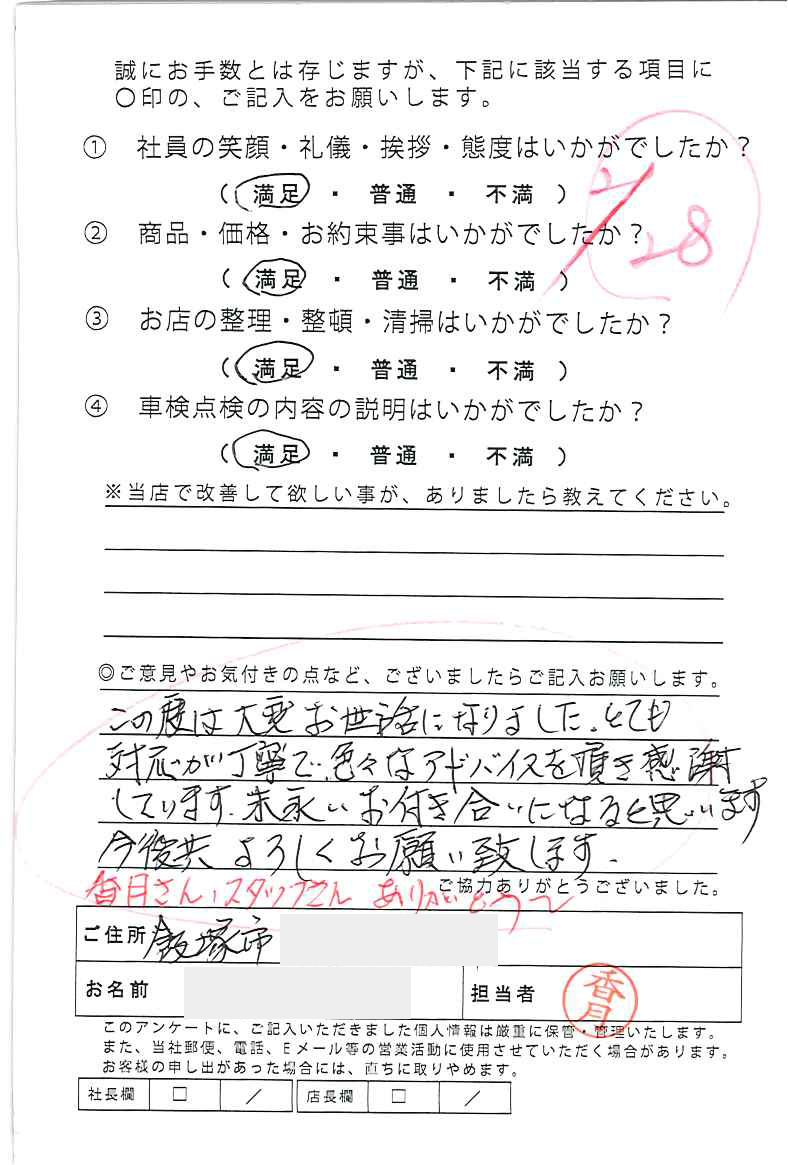 誠にお手数とは存じますが、下記に該当する項目に
〇印の、ご記入をお願いします。
① 社員の笑顔・礼儀・挨拶・態度はいかがでしたか?
( 満足 ・ 普通 ・ 不満 )
2/28
② 商品・価格・お約束事はいかがでしたか?
( 満足 ・ 普通 ・ 不満 )
③ お店の整理・整頓・清掃はいかがでしたか?
( 満足 ・ 普通 ・ 不満 )
④ 車検点検の内容の説明はいかがでしたか?
( 満足 ・ 普通 ・ 不満 )
※当店で改善して欲しい事が、ありましたら教えてください。
◎ご意見やお気付きの点など、ございましたらご記入お願いします。
この度は大変お世話になりました。とても
対応が丁寧で、色々なアドバイスを頂き感謝
しています。末永いお付き合いになると思います
今後共よろしくお願い致します。
ご協力ありがとうございました。
香月さん、スタッフさん ありがとう〜
ご住所 飯塚市
お名前 担当者 香月
このアンケートに、ご記入いただきました個人情報は厳重に保管・管理いたします。
また、当社郵便、電話、Eメール等の営業活動に使用させていただく場合があります。
お客様の申し出があった場合には、直ちに取りやめます。
社長欄 □ / 店長欄 □ /